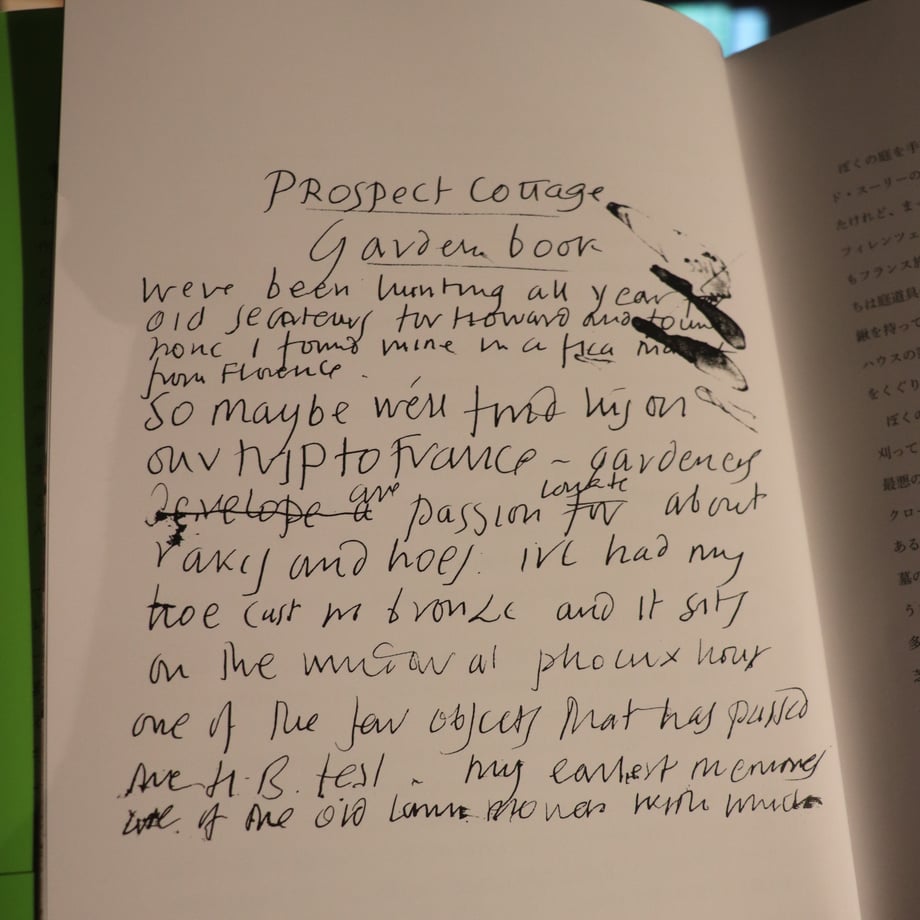 Prospect Cottage
Garden book
Weve been hunting all year for
old secateurs for Howard and found
none I found mine in a flea market
from Florence.
So maybe we'll find his on
our trip to France ~ gardeners
develope a are passion for ionate about
rakes and hoes. ive had my
hoe cast in bronze and it sits
on the window at phoenix house
one of the few objects that has passed
the H.B. test. my earliest memories
are of the old lawn mower with which
ぼくの庭を手
ド・スーリーの
たけれど、ま
フィレンツェ
もフランス旅
ちは庭道具
鍬を持って
ハウスの
をくぐり
ぼくの
刈って
最悪の
クロー
ある
墓の
う
多